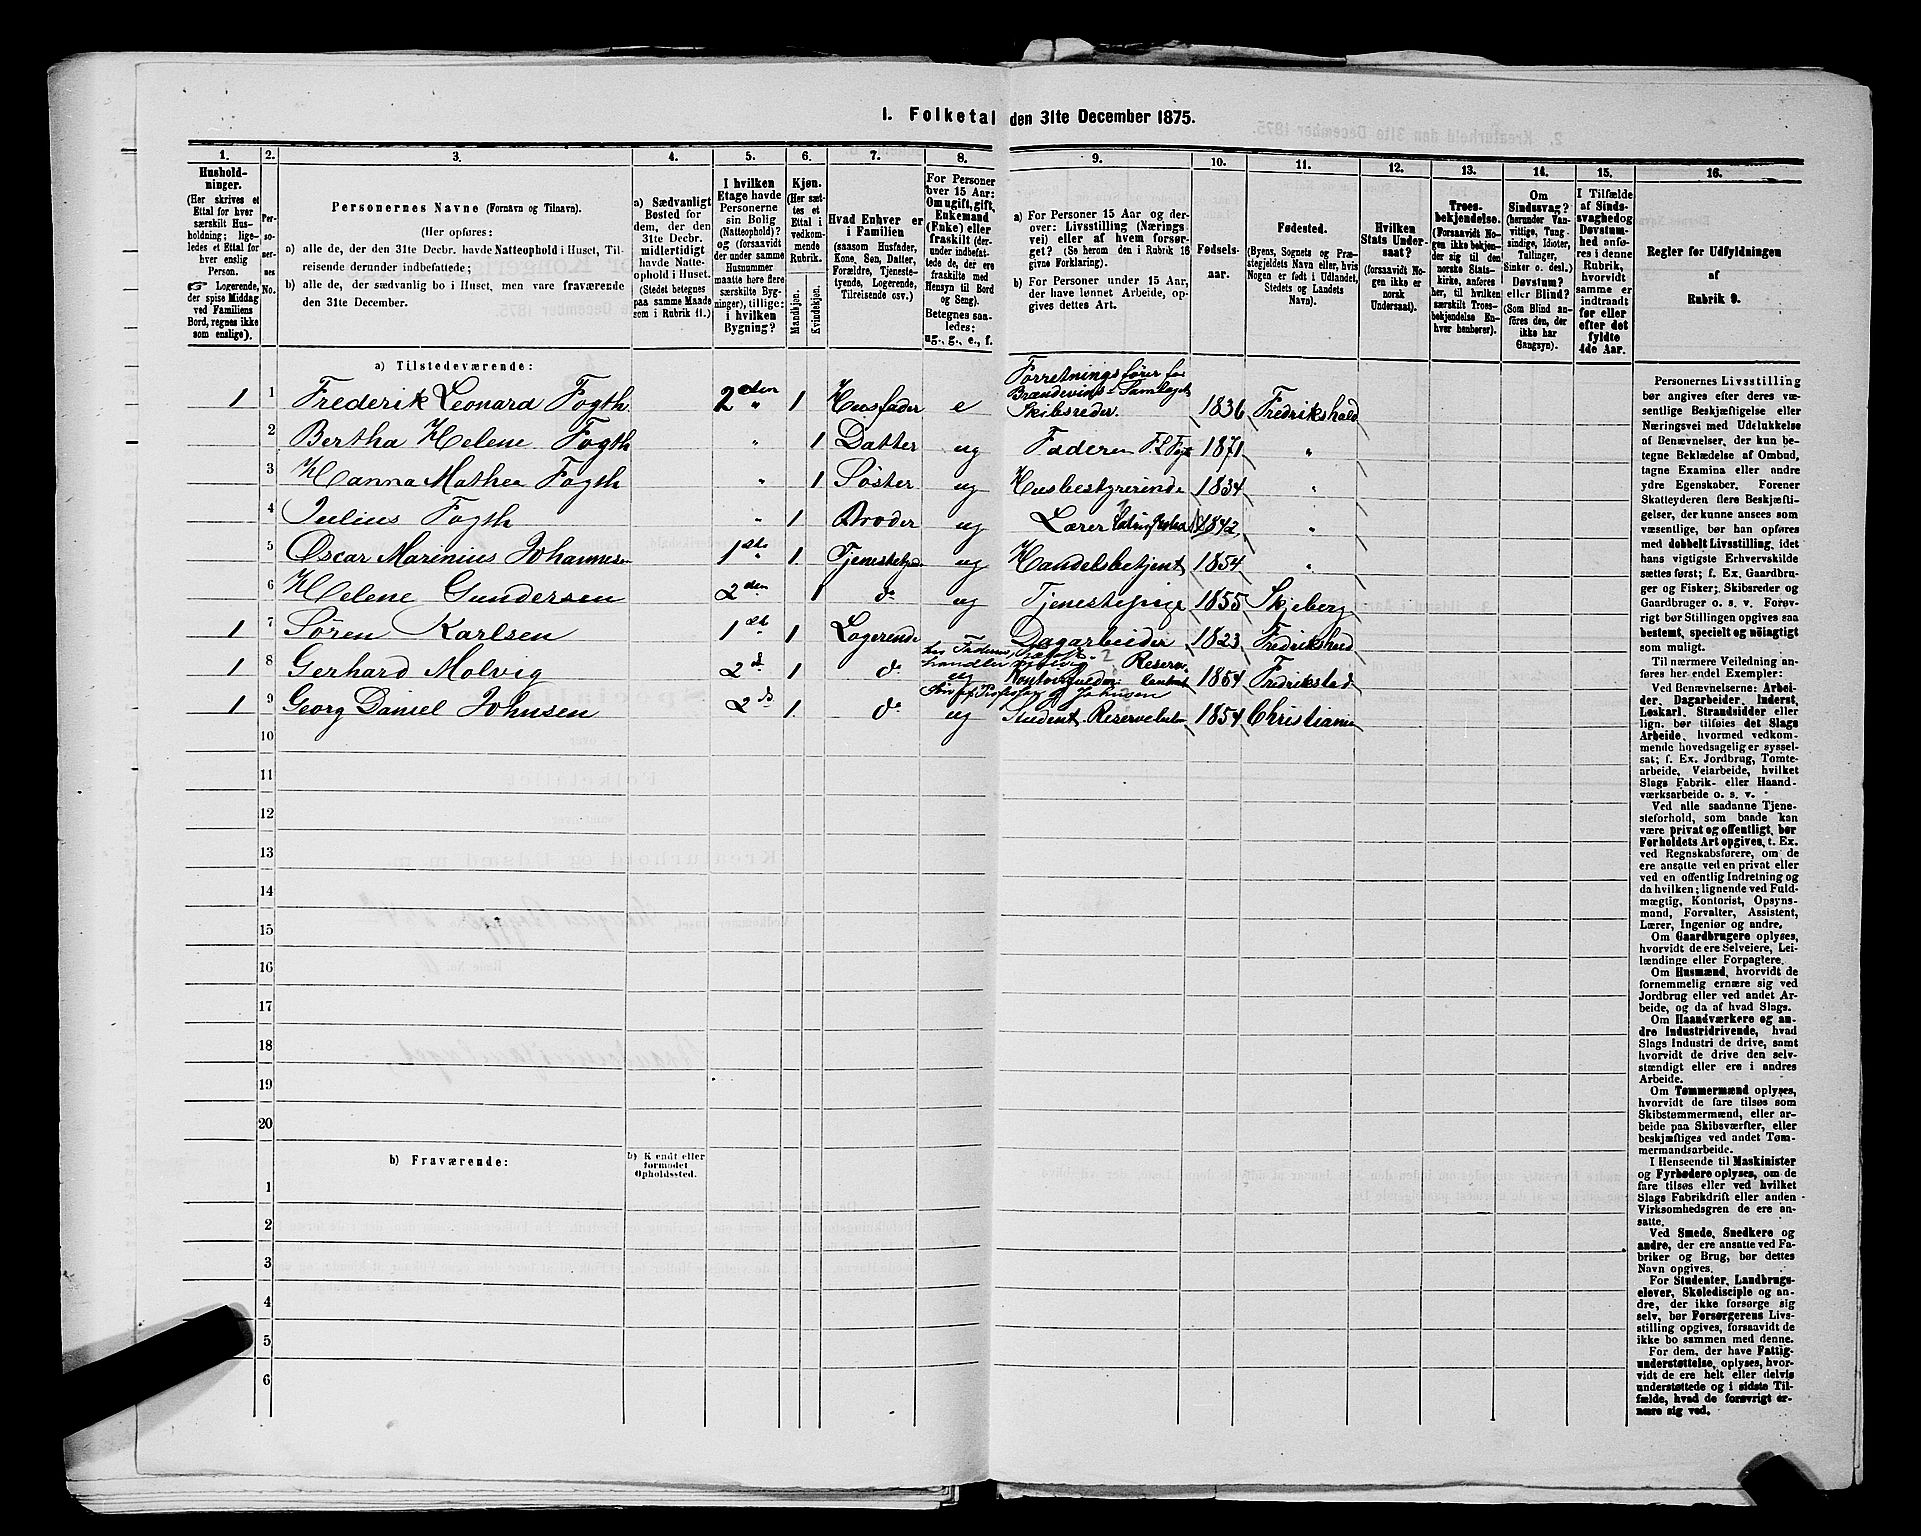 1. Folketal den 31te December 1875.
1.
2.
3.
4.
5.
6.
7.
8.
9.
10.
11.
12.
13.
14.
15.
16.
Hushold-
ninger.
(Her skrives et
Ettal for hver
særskilt Hus-
holdning; lige-
ledes et Ettal for
hver enslig
Person.
☞ Logerende,
der spise Middag
ved Familiens
Bord, regnes ikke
som enslige).
Per-
so-
ner-
nes
No.
Personernes Navne (Fornavn og Tilnavn).
(Her opføres:
a) alle de, der den 31te Decbr. havde Natteophold i Huset, Til-
reisende derunder indbefattede;
b) alle de, der sædvanlig bo i Huset, men vare fraværende
den 31te December.
a) Sædvanligt
Bosted for
dem, der den
31te Decbr.
midlertidigt
havde Natte-
ophold i Huset.
(Stedet betegnes
paa samme Maade
som i Rubrik 11.)
I hvilken
Etage havde
Personerne
sin Bolig
(Natteophold)?
og (forsaavidt
der under samme
Husnummer
maatte høre flere
særskilte Byg-
ninger), tillige:
i hvilken
Bygning?
Kjøn.
(Her sæt-
tes et
Ettal i
vedkom-
mende
Rubrik.
Mandkjøn.
Kvindekjøn.
Hvad Enhver er
i Familien
(saasom Husfader,
Kone, Søn, Datter,
Forældre, Tjeneste-
tyende, Logerende,
Tilreisende osv.)
For Personer
over 15 Aar:
Om ugift, gift,
Enkemand
(Enke) eller
fraskilt (der-
under indbefat-
tede de, der ere
fraskilte med
Hensyn til Bord
og Seng).
Betegnes saa-
ledes:
ug., g., e., f.
a) For Personer 15 Aar og der-
over: Livsstilling (Nærings-
vei) eller af hvem forsør-
get? (Se herom den i Rubrik 16
givne Forklaring).
b) For Personer under 15 Aar,
der have lønnet Arbeide, op-
gives dettes Art.
Fødsels-
aar.
Fødested.
(Byens, Sognets og Præ-
stegjeldets Navn eller, hvis
Nogen er født i Udlandet,
Stedets og Landets
Navn).
Hvilken
Stats Under-
saat?
(forsaavidt No-
gen ikke er
norsk
Undersaat).
Troes-
bekjendelse.
(Forsaavidt No-
gen ikke bekjen-
der sig til den
norske Stats-
kirke, anføres
her, til hvilken
særskilt Troes-
bekjendelse En-
hver henhører).
Om
Sindssvag?
(herunder Van-
vittige, Tung-
sindige, Idioter,
Tullinger,
Sinker o. desl.)
Døvstum?
eller Blind?
(Som Blind an-
føres den, der
ikke har
Gangsyn).
I Tilfælde
af Sinds-
svaghed og
Døvstum-
hed anfø-
res i denne
Rubrik,
hvorvidt
samme er
indtraadt
før eller
efter det
fyldte
4de Aar.
Regler for Udfyldningen
af
Rubrik 9.
a) Tilstedeværende:
1 1 Frederik Leonard Fogth 2den " 1 Husfader e Forretningsfører for
Brændevins-Samlaget
Skibsreder. 1836 Fredrikshald
2 Bertha Helene Fogth " 1 Datter ug Faderen F. L. 1871 "
3 Hanna Mathea Fogth " 1 Søster ug Husbestyrerinde 1834 "
4 Julius Fogth " 1 Broder ug Lærer 1842 "
5 Oscar Marinius Johannesen 1ste " 1 ug Handelsbetjent 1854 "
6 Helene Gundersen 2den 1 do ug Tjenestepige 1855 Skjeberg
1 7 Søren Karlsen 1ste 1 Logerende Dagarbeider 1823 Fredrikshald
1 8 Gerhard Molvig 2d 1 do ug 1854 Fredrikstad
1 9 Georg Daniel Johnsen 2d 1 do ug Student 1854 Christiania
10
11
12
13
14
15
16
17
18
19
20
b) Fraværende:
b) Kjendt eller
formodet
Opholdssted.
1
2
3
4
5
6
Personernes Livsstilling
bør angives efter deres væ-
sentlige Beskjæftigelse eller
Næringsvei med Udelukkelse
af Benævnelser, der kun be-
tegne Beklædelse af Ombud,
tagne Examina eller andre
ydre Egenskaber. Forener
Skatteyderen flere Beskjæfti-
gelser, der kunne ansees som
væsentlige, bør han opføres
med dobbelt Livsstilling, idet
hans vigtigste Erhvervskilde
sættes først; f. Ex. Gaardbru-
ger og Fisker; Skibsreder og
Gaardbruger o. s. v. Forøv-
rigt bør Stillingen opgives saa
bestemt, specielt og nøiagtigt
som muligt.
Til nærmere Veiledning an-
føres her endel Exempler:
Ved Benævnelserne: Arbei-
der, Dagarbeider, Inderst,
Løskarl, Strandsidder eller
lign. bør tilføies det Slags
Arbeide, hvormed vedkom-
mende hovedsagelig er syssel-
sat; f. Ex. Jordbrug, Tomte-
arbeide, Veiarbeide, hvilket
Slags Fabrik- eller Haand-
værksarbeide o. s. v.
Ved alle saadanne Tjene-
steforhold, som baade kan
være privat og offentligt, bør
Forholdets Art opgives, t. Ex.
ved Regnskabsførere, om de
ere ansatte ved en privat eller
ved en offentlig Indretning og
da hvilken; lignende ved Fuld-
mægtig, Kontorist, Opsyns-
mand, Forvalter, Assistent,
Lærer, Ingeniør og andre.
Om Gaardbrugere oplyses,
hvorvidt de ere Selveiere, Lei-
lændinge eller Forpagtere.
Om Husmænd, hvorvidt de
fornemmelig ernære sig ved
Jordbrug eller ved andet Ar-
beide, og da af hvad Slags.
Om Haandværkere og an-
dre Industridrivende, hvad
Slags Industri de drive, samt
hvorvidt de drive den selv-
stændigt eller ere i andres
Arbeide.
Om Tømmermænd oplyses,
hvorvidt de fare tilsøs som
Skibstømmermænd, eller ar-
beide paa Skibsværfter, eller
beskjæftiges ved andet Tøm-
mermandsarbeide.
I Henseende til Maskinister
og Fyrbødere oplyses, om de
fare tilsøs eller ved hvilket
Slags Fabrikdrift eller anden
Virksomhedsgren de ere an-
satte.
Ved Smede, Snedkere og
andre, der ere ansatte ved Fa-
briker og Brug, bør dettes
Navn opgives.
For Studenter, Landbrugs-
elever, Skoledisciple og an-
dre, der ikke forsørge sig
selv, bør Forsørgerens Livs-
stilling opgives, forsaavidt de
ikke bo sammen med denne.
For dem, der have Fattig-
understøttelse, oplyses, hvor-
vidt de ere helt eller delvis
understøttede og i sidste Til-
fælde, hvad de forøvrigt er-
nære sig ved.